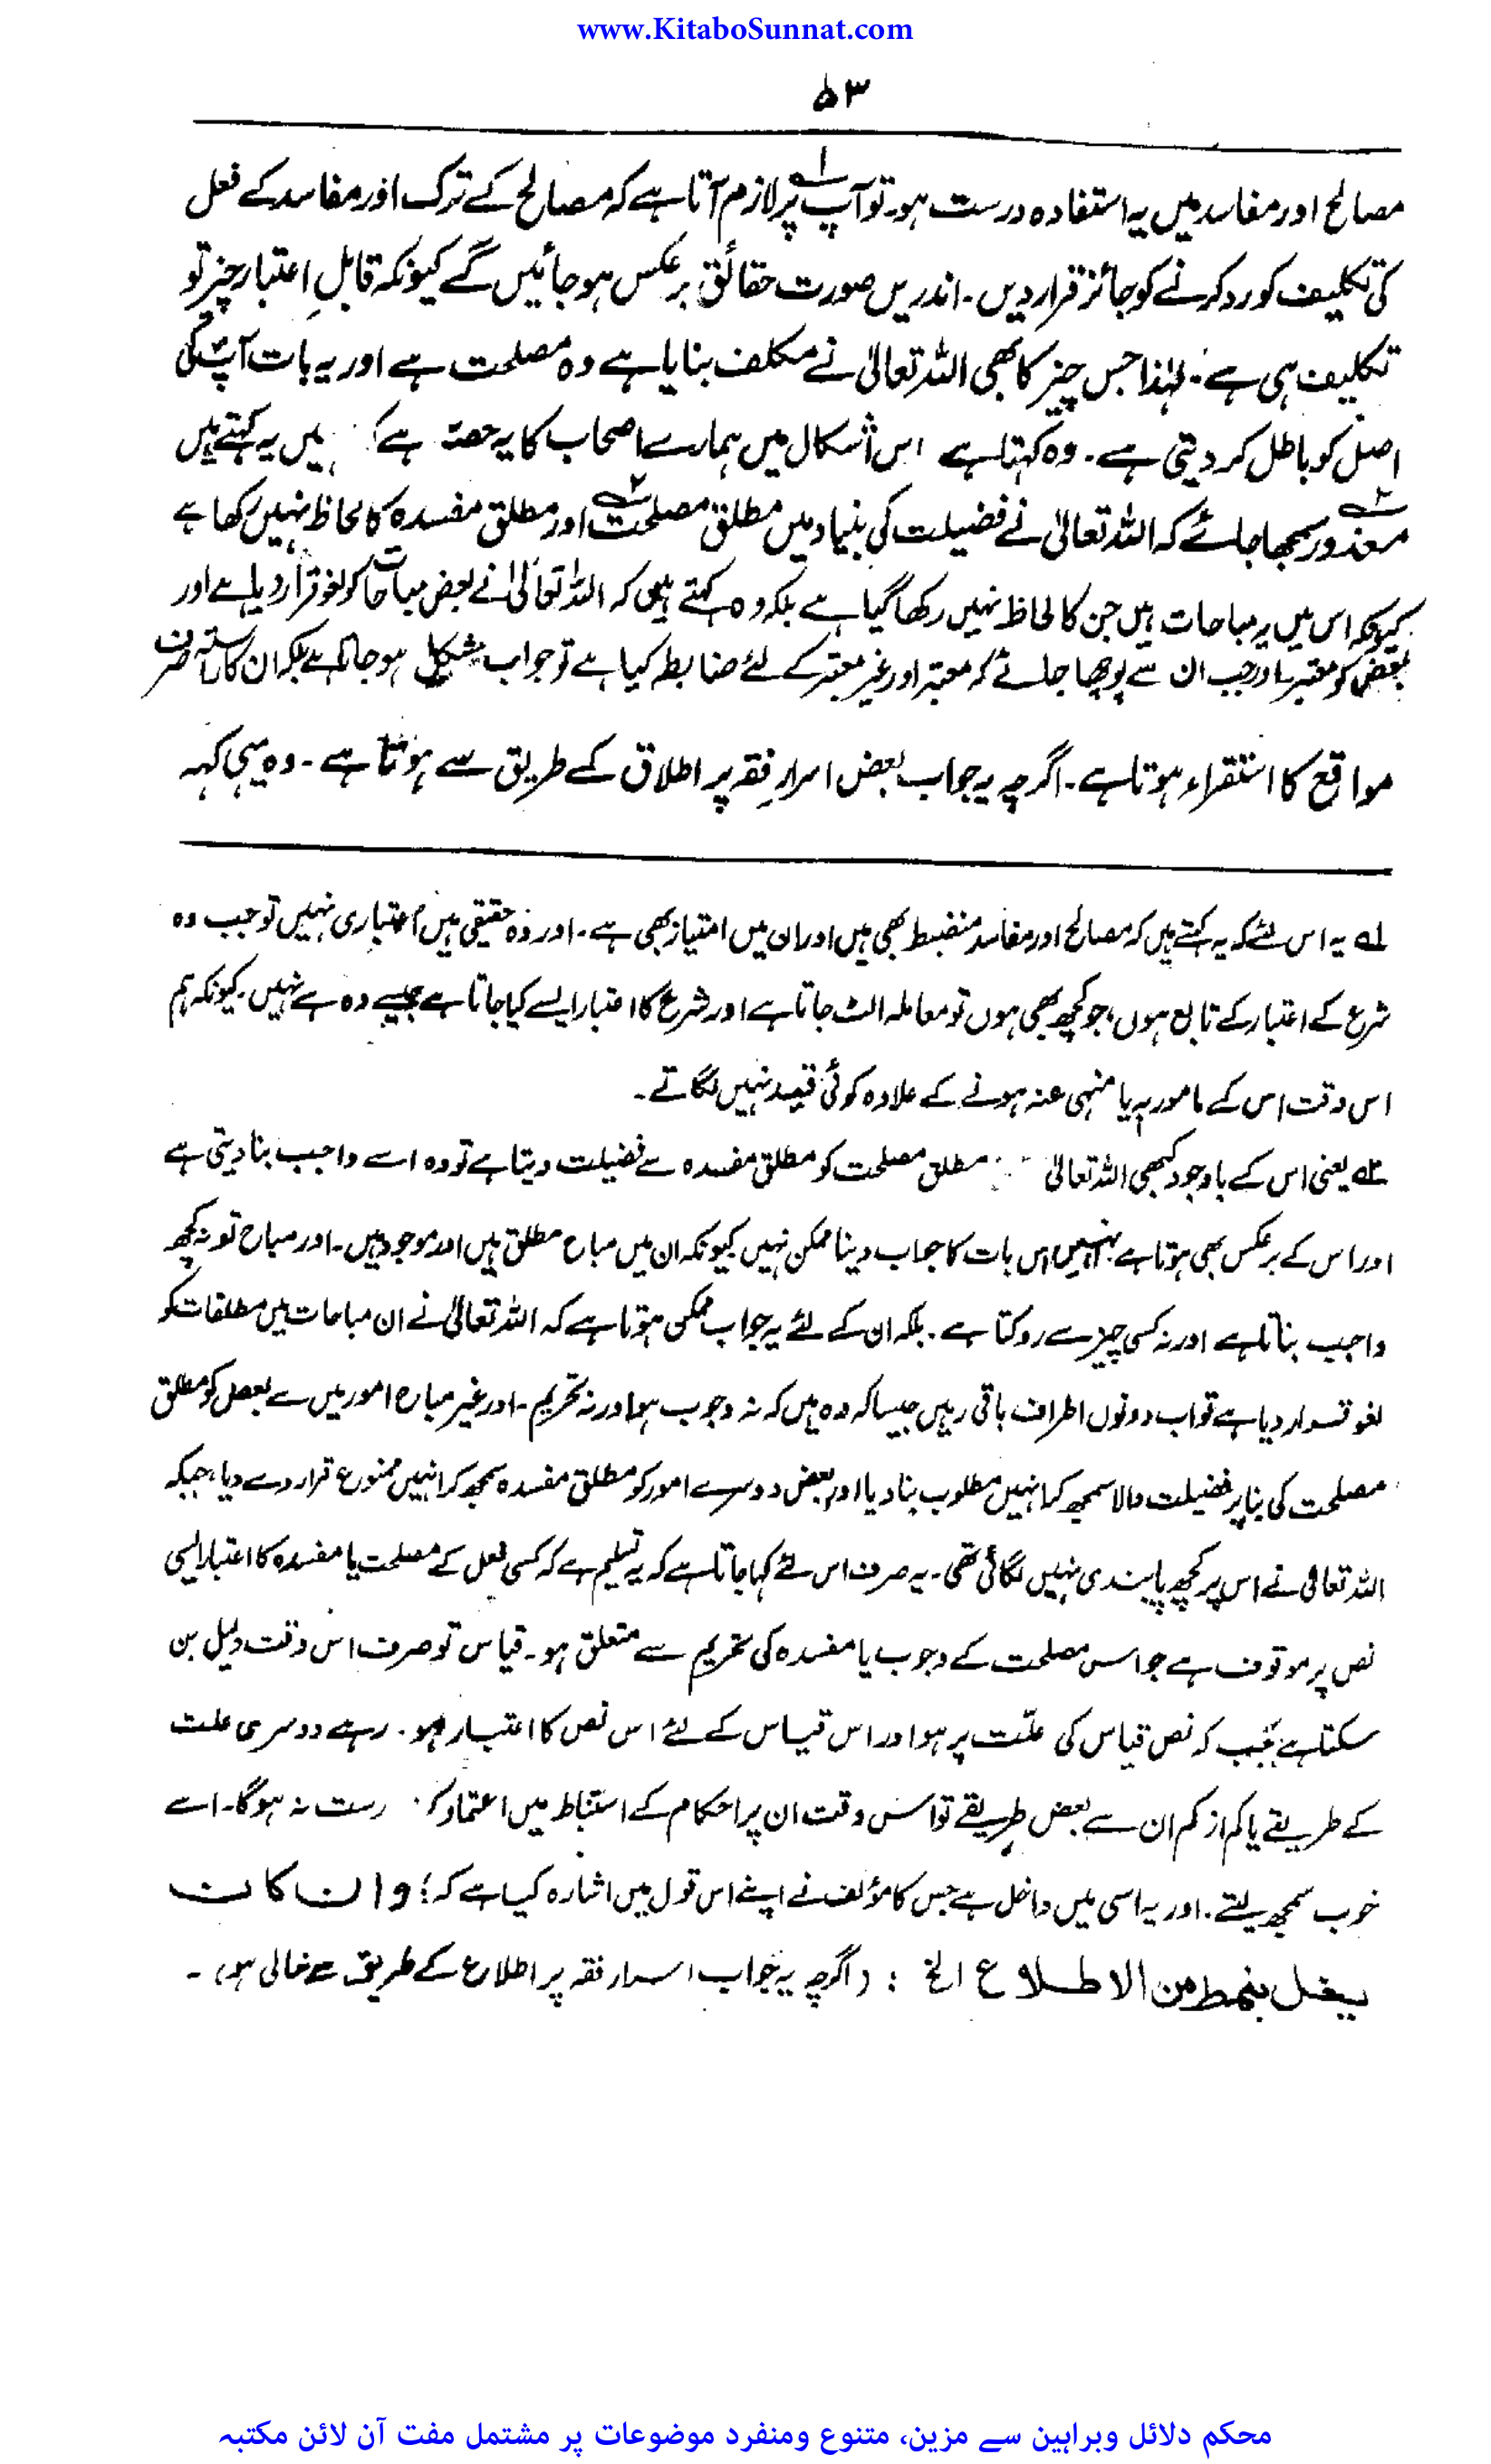 www.KitaboSunnat.com
۵۳
مصالح اور مفاسد میں یہ استفادہ درست ہو۔ تو آپ پر لازم آتا ہے کہ مصالح کے ترک اور مفاسد کے فعل
کی تکلیف کو رد کرنے کو جائز قرار دیں۔ اندریں صورت حقائق برعکس ہو جائیں گے کیونکہ قابلِ اعتبار چیز تو
تکلیف ہی ہے۔ لہٰذا جس چیز کا بھی اللہ تعالیٰ نے مکلف بنایا ہے وہ مصلحت ہے اور یہ بات آپ کی
اصل کو باطل کر دیتی ہے۔ وہ کہتا ہے اس اشکال میں ہمارے اصحاب کا یہ حصہ ہے کہ یہ کہتے ہیں
معذور سمجھا جائے کہ اللہ تعالیٰ نے فضیلت کی بنیاد میں مطلق مصلحت۲ اور مطلق مفسدہ کا لحاظ نہیں رکھا ہے
کیونکہ اس میں یہ مباحات ہیں جن کا لحاظ نہیں رکھا گیا ہے بلکہ وہ کہتے ہیں کہ اللہ تعالیٰ نے بعض مباحات کو لغو قرار دیا ہے اور
بعض کو معتبر، اور جب ان سے پوچھا جائے کہ معتبر اور غیر معتبر کے لئے ضابطہ کیا ہے تو جواب مشکل ہو جاتا ہے بلکہ ان کا راستہ صرف
مواقع کا استقراء ہوتا ہے۔ اگرچہ یہ جواب بعض اسرارِ فقہ پر اطلاق کے طریق سے ہوتا ہے۔ وہ یہی کہہ
لہ یہ اس لئے کہ یہ کہتے ہیں کہ مصالح اور مفاسد منضبط بھی ہیں اور ان میں امتیاز بھی ہے۔ اور وہ حقیقی ہیں اعتباری نہیں تو جب وہ
شرع کے اعتبار کے تابع ہوں، جو کچھ بھی ہوں تو معاملہ الٹ جاتا ہے اور شرع کا اعتبار ایسے کیا جاتا ہے جیسے وہ ہے نہیں۔ کیونکہ ہم
اس وقت اس کے مامور بہ یا منہی عنہ ہونے کے علاوہ کوئی قید نہیں لگاتے۔
۲ یعنی اس کے باوجود کبھی اللہ تعالیٰ مطلق مصلحت کو مطلق مفسدہ سے فضیلت دیتا ہے تو وہ اسے واجب بنا دیتی ہے
اور اس کے برعکس بھی ہوتا ہے۔ انہیں اس بات کا جواب دینا ممکن نہیں کیونکہ ان میں مباح مطلق ہیں اور موجود ہیں۔ اور مباح تو نہ کچھ
واجب بناتا ہے اور نہ کسی چیز سے روکتا ہے۔ بلکہ ان کے لئے یہ جواب ممکن ہوتا ہے کہ اللہ تعالیٰ نے ان مباحات میں مطلقات کو
لغو قرار دیا ہے تو اب دونوں اطراف باقی رہیں جیسا کہ وہ ہیں کہ نہ وجوب ہو اور نہ تحریم۔ اور غیر مباح امور میں سے بعض کو مطلق
مصلحت کی بنا پر فضیلت والا سمجھ کر انہیں مطلوب بنا دیا اور بعض دوسرے امور کو مطلق مفسدہ سمجھ کر انہیں ممنوع قرار دے دیا، جبکہ
اللہ تعالیٰ نے اس پر کچھ پابندی نہیں لگائی تھی۔ یہ صرف اس لئے کہا جاتا ہے کہ یہ تسلیم ہے کہ کسی فعل کے مصلحت یا مفسدہ کا اعتبار ایسی
نص پر موقوف ہے جو اس مصلحت کے وجوب یا مفسدہ کی تحریم سے متعلق ہو۔ قیاس تو صرف اس وقت دلیل بن
سکتا ہے جب کہ نص قیاس کی علّت پر ہو اور اس قیاس کے لئے اس نص کا اعتبار ہو۔ رہے دوسری علت
کے طریقے یا کم از کم ان سے بعض طریقے تو اس وقت ان پر احکام کے استنباط میں اعتماد رست نہ ہوگا۔ اسے
خوب سمجھ لیتے۔ اور یہ اسی میں داخل ہے جس کا مؤلف نے اپنے اس قول میں اشارہ کیا ہے کہ؛ وان کان
یخل بنمط من الاطلاع الخ : (اگرچہ یہ جواب اسرار فقہ پر اطلاع کے طریق سے خالی ہو)۔
محکم دلائل وبراہین سے مزین، متنوع ومنفرد موضوعات پر مشتمل مفت آن لائن مکتبہ